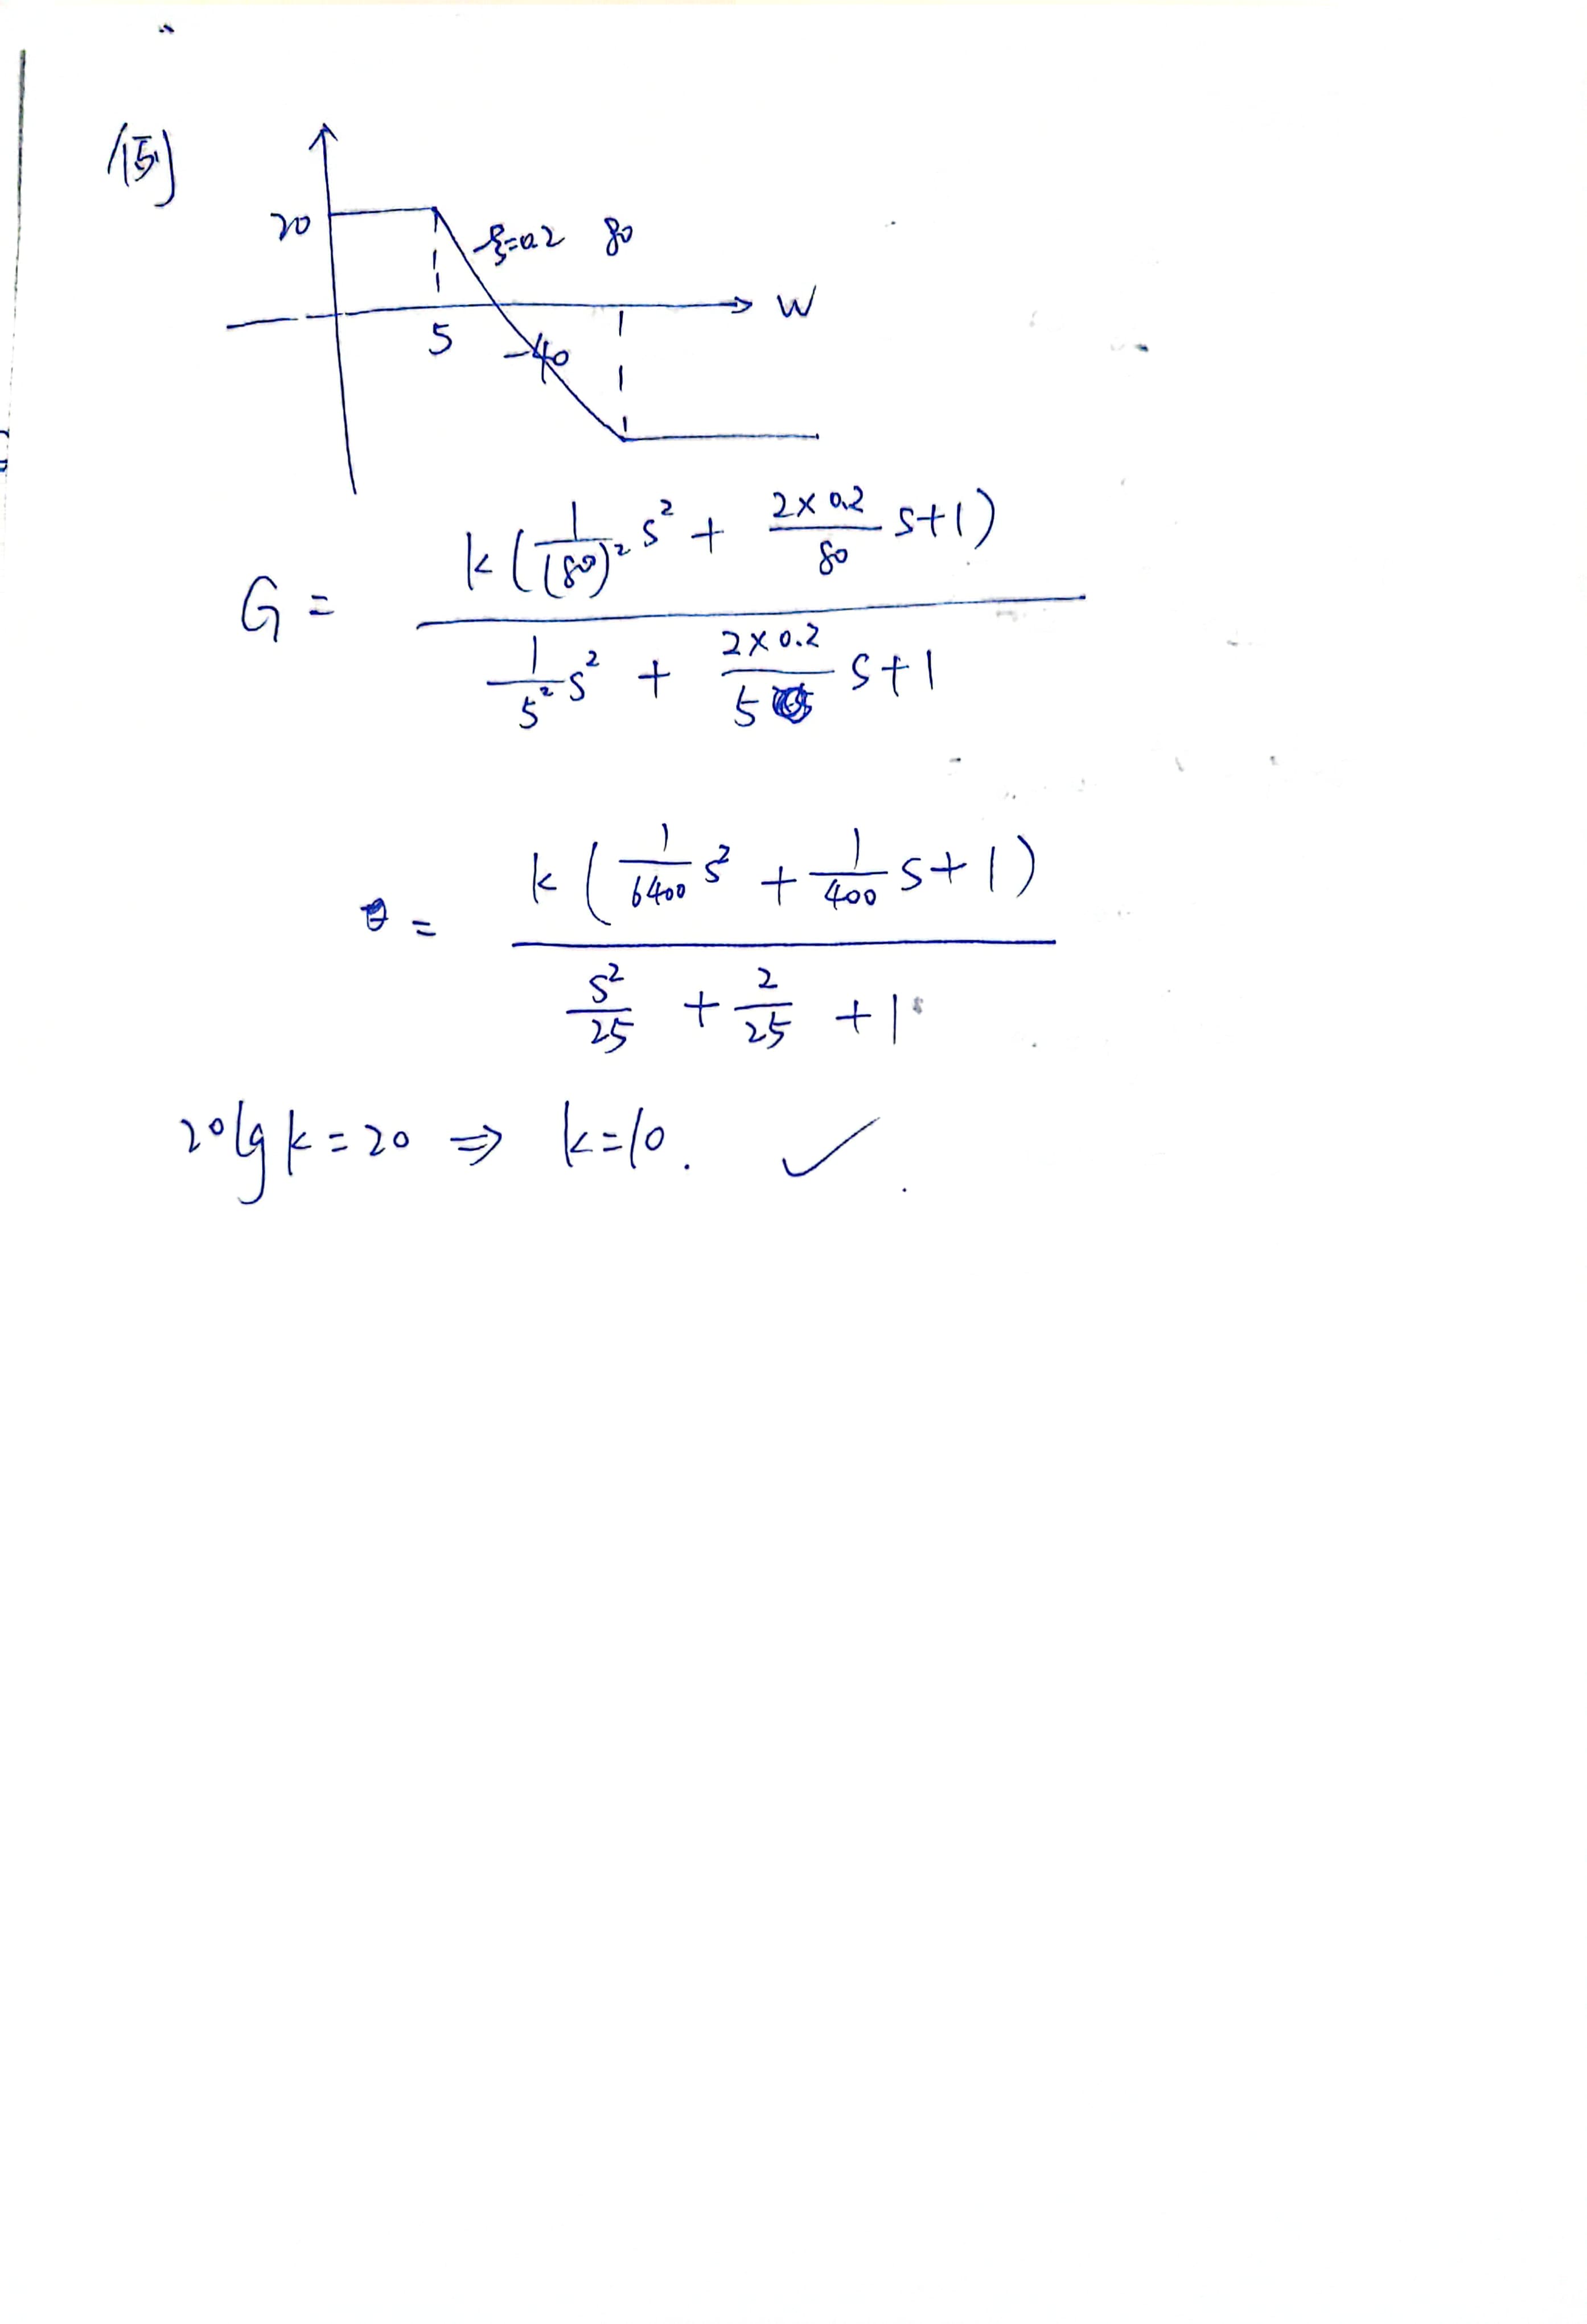 例
20
ξ=0.2 80
W
5
-40
G = k(1/(80)² s² + 2×0.2/80 s+1) / (1/5² s² + 2×0.2/5 s+1)
= k(1/6400 s² + 1/400 s+1) / (s²/25 + 2/25 +1)
20lg k=20 ⇒ k=10. ✓